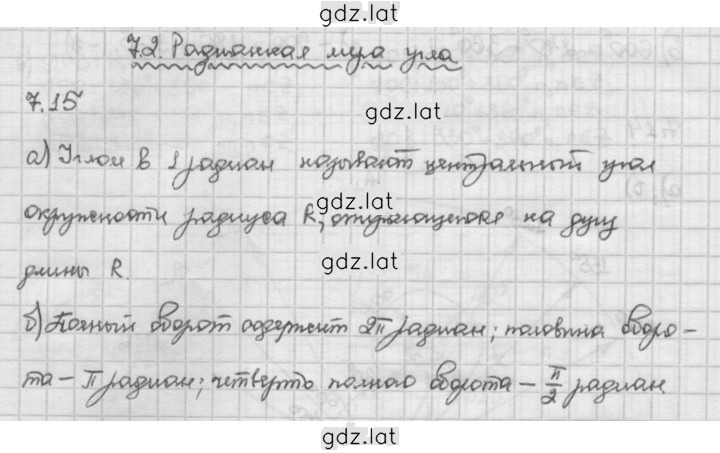 gdz.lat
7.2. Радианная мера угла
7.15
gdz.lat
а) Углом в 1 радиан называют центральный угол
gdz.lat
окружности радиуса R, опирающийся на дугу
gdz.lat
длины R.
б) Полный оборот содержит 2π радиан; половина оборо-
gdz.lat
та - π радиан; четверть полного оборота - π/2 радиан
gdz.lat